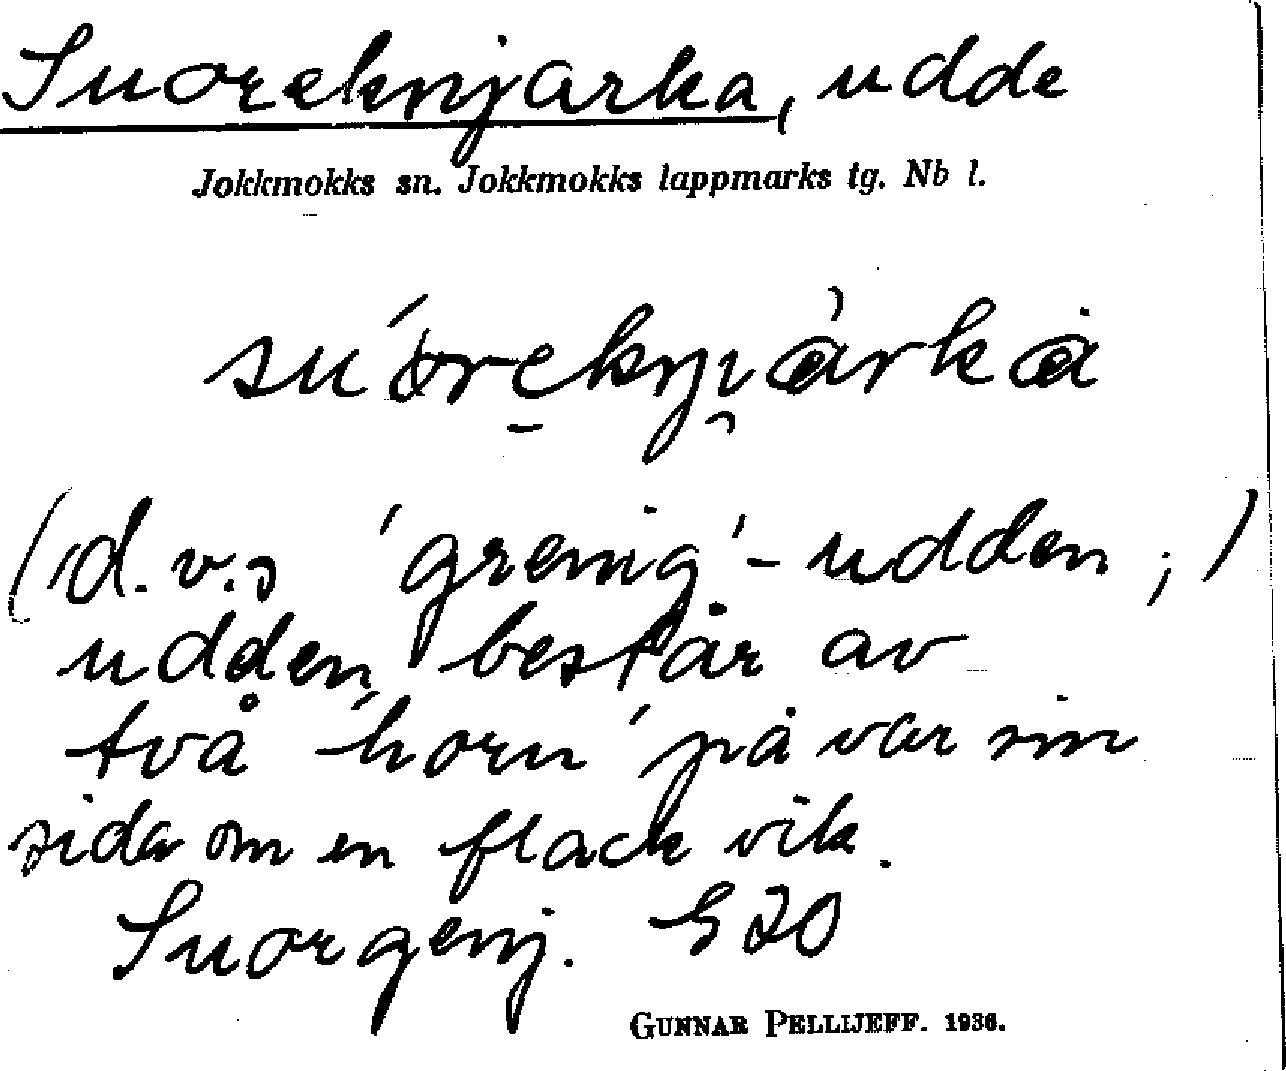 Suoreknjarka, udde
Jokkmokks sn. Jokkmokks lappmarks tg. Nb l.
(d.v.s 'grenig'-udden;)
udden består av
två 'horn' på var sin
sida om en flack vik.
Suorgenj. G20
GUNNAR PELLIJEFF. 1936.